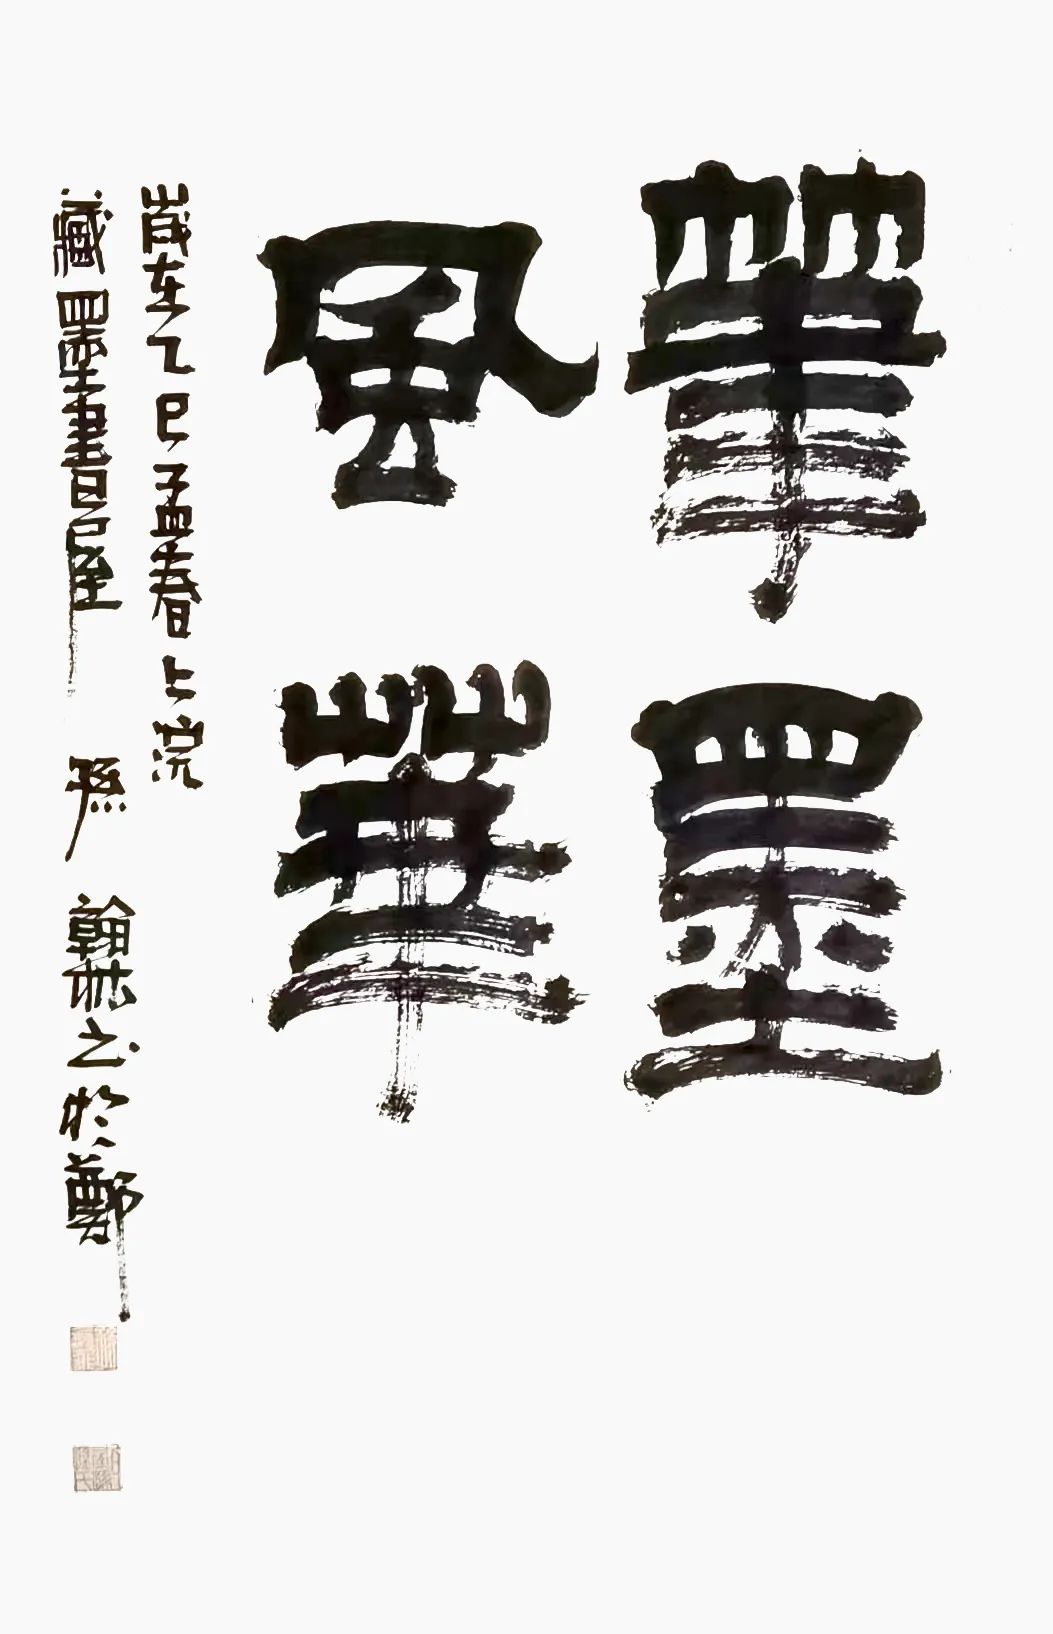 筆墨
風華
歲在乙巳孟春上浣
藏墨書屋 孫翰林書於鄭